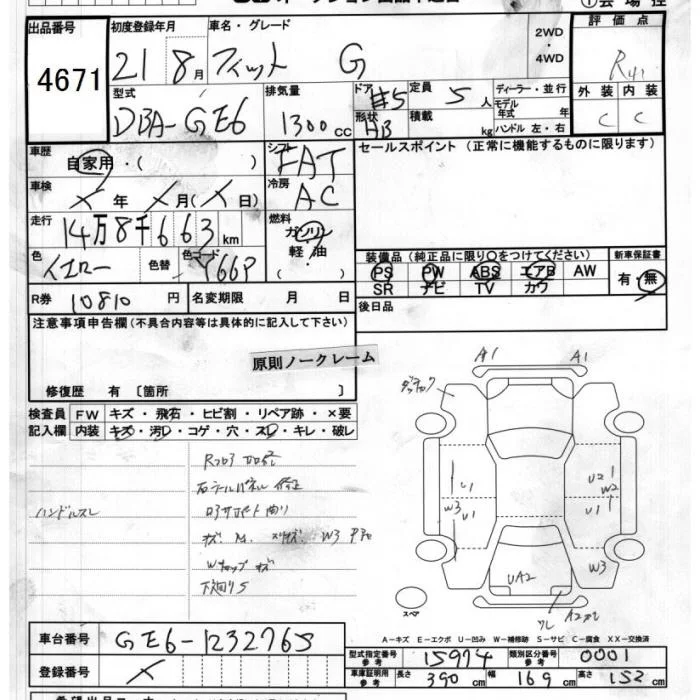 出品番号
4671
初度登録年月
21 8月
車名・グレード
フィット G
2WD
・
4WD
評価点
R41
外装 内装
C C
型式
DBA-GE6
排気量
1300cc
ドア
#5
形状
HB
定員
5人
積載
kg
ディーラー・並行
モデル年式 年
ハンドル 左・右
車歴
自家用・( )
シフト
FAT
セールスポイント (正常に機能するものに限ります)
車検
X年 X月(X日)
冷房
AC
走行
14万8千663km
燃料
ガソリン
軽・油
( )
色
イエロー
色替
色コード
Y66P
装備品 (純正品に限り○をつけてください)
PS PW ABS エアB AW
SR ナビ TV カワ
新車保証書
有・無
R券 10810円
名変期限 月 日
後日品
注意事項申告欄 (不具合内容等は具体的に記入して下さい)
原則ノークレーム
修復歴 有 〔箇所 〕
検査員記入欄
FW キズ・飛石・ヒビ割・リペア跡・×要
内装 キズ・汚レ・コゲ・穴・スレ・キレ・破レ
ハンドルスレ
キズ M. W3
Wキャップ キズ
下廻りS
A1 A1
U1
W3 U1
U2
W2
U1
W3
UA2
スペア
A-キズ E-エクボ U-凹み W-補修跡 S-サビ C-腐食 XX-交換済
車台番号 GE6-1232765
登録番号 X
型式指定番号 参考 15974
類別区分番号 参考 0001
車庫証明用 参考 長さ 390cm 幅 169cm 高さ 152cm